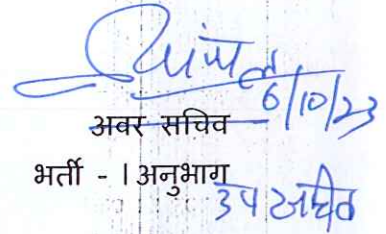 6/10/23
अवर सचिव
भर्ती - I अनुभाग
उप सचिव